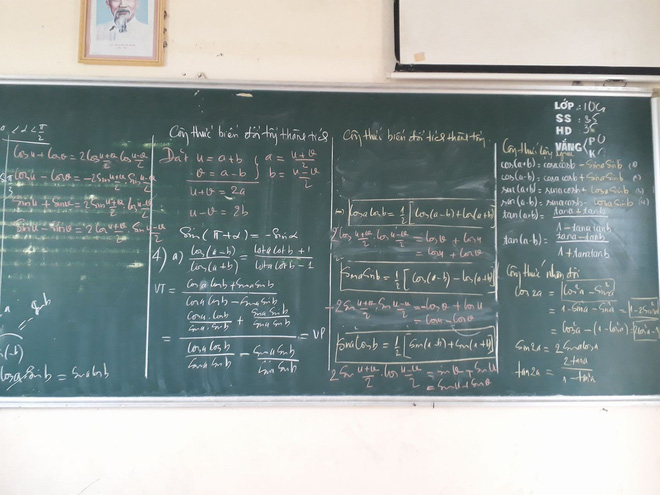 0 < α < π/2
cosu + cosv = 2cos (u+v)/2 cos (u-v)/2
cosu - cosv = -2sin (u+v)/2 sin (u-v)/2
sinu + sinv = 2sin (u+v)/2 cos (u-v)/2
sinu - sinv = 2cos (u+v)/2 sin (u-v)/2
= sina cosb
Công thức biến đổi tổng thành tích
Đặt u = a+b
v = a-b
a = (u+v)/2
b = (u-v)/2
u+v = 2a
u-v = 2b
Sin(π+α) = -Sinα
4) a) cos(a-b)/cos(a+b) = (cota cotb + 1)/(cota cotb - 1)
VT = (cosa cosb + sina sinb)/(cosa cosb - sina sinb)
= (cosa.cosb/sina.sinb + sina sinb/sina sinb)/(cosa cosb/sina sinb - sina sinb/sina sinb) = VP
Công thức biến đổi tích thành tổng
cosa cosb = 1/2 [cos(a-b) + cos(a+b)]
2cos (u+v)/2 cos (u-v)/2 = cosv + cosu
= cosu + cosv
sina sinb = 1/2 [cos(a-b) - cos(a+b)]
-2 sin (u+v)/2 sin (u-v)/2 = -cosv + cosu
= cosu - cosv
sina cosb = 1/2 [sin(a-b) + sin(a+b)]
2 sin (u+v)/2 . cos (u-v)/2 = sinv + sinu
= sinu + sinv
LỚP : 10G
SS : 35
HD : 35
VẮNG (P 0
K 0
Công thức cộng
cos(a+b) = cosa cosb - sina sinb
cos(a-b) = cosa cosb + sina sinb
sin(a+b) = sina cosb + cosa sinb
sin(a-b) = sina cosb - cosa sinb
tan(a+b) = (tana + tanb)/(1 - tana tanb)
tan(a-b) = (tana - tanb)/(1 + tana tanb)
Công thức nhân đôi
cos2a = cos²a - sin²a
= 1 - sin²a - sin²a = 1 - 2sin²a
= cos²a - (1 - cos²a) = 2cos²a - 1
sin2a = 2 sina cosa
tan2a = 2tana/(1 - tan²a)